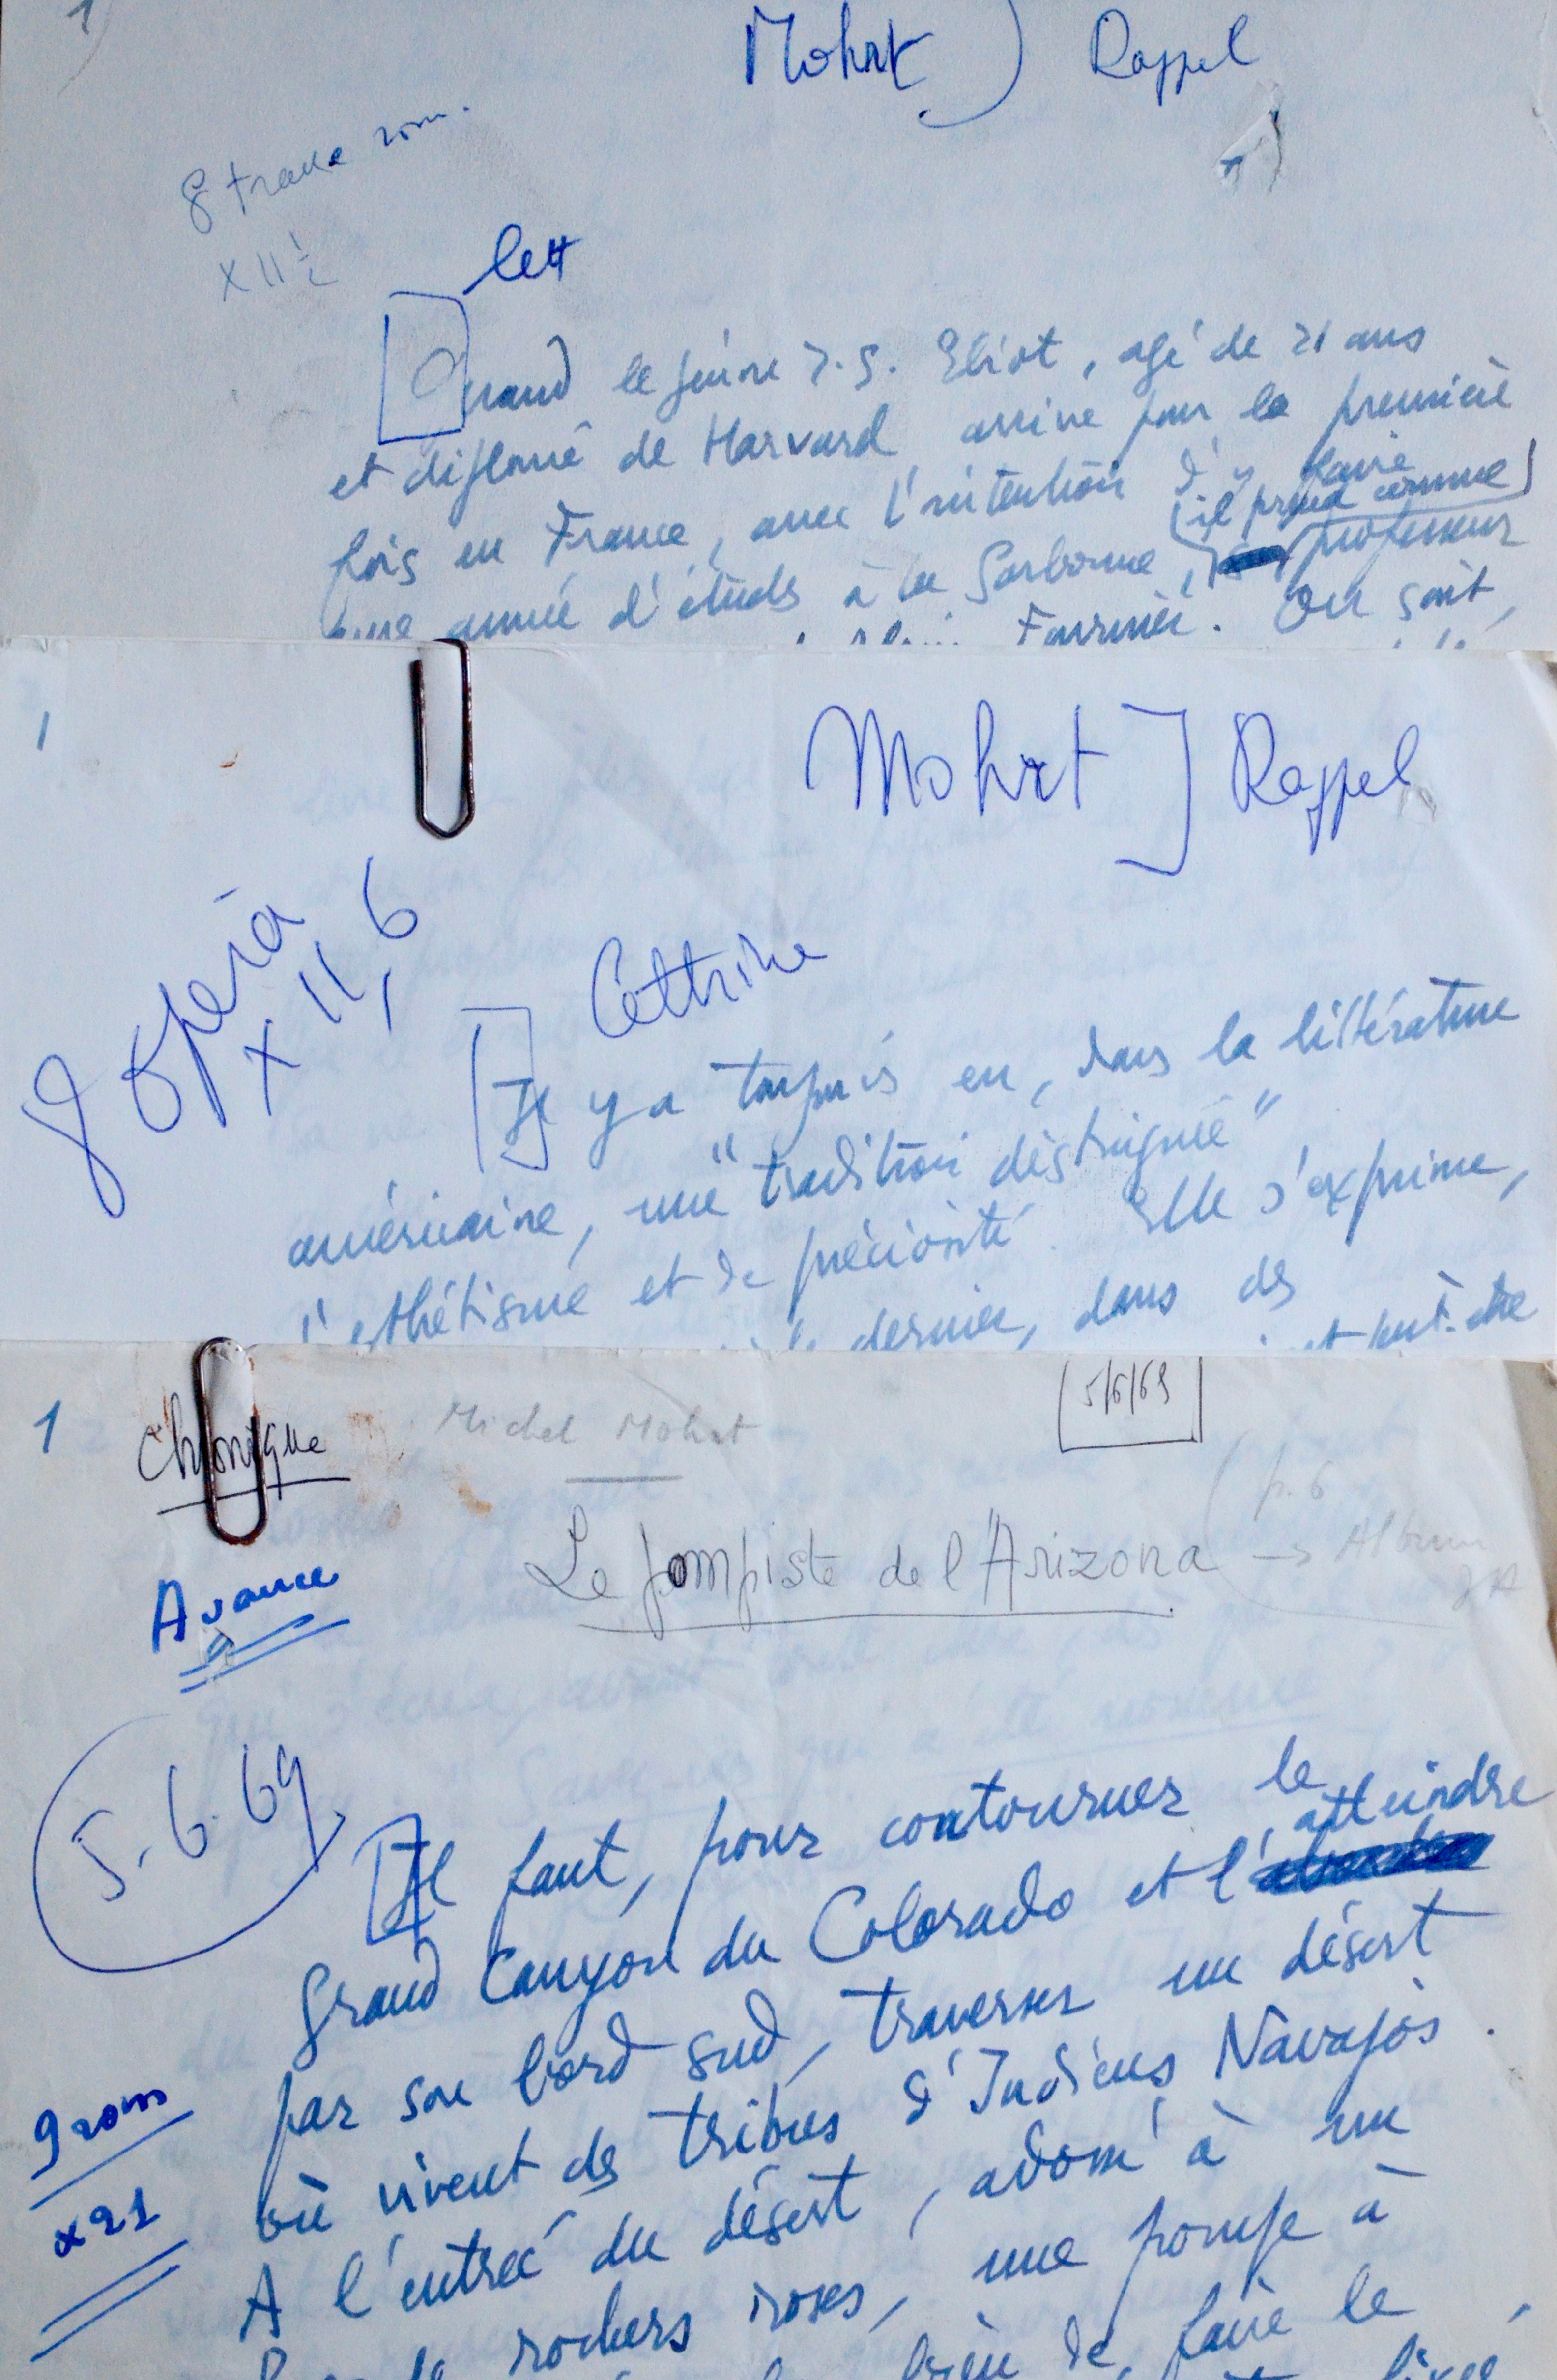 1
Mohrt) Rappel
8 trava rom.
X 11 ½
lett
Quand le jeune T.S. Eliot, agé de 21 ans
et diplomé de Harvard arrive pour la première
fois en France, avec l'intention d'y faire
il prend comme
une année d'études à la Sorbonne, professeur
Fournier. On sait,
1
Mohrt] Rappel
8 opéra
x 11,6
Il y a toujours eu, dans la littérature
américaine, une "tradition distinguée"
d'esthétisme et de préciosité. Elle s'exprime,
dernier, dans des
et peut-être
1
Chronique
Michel Mohrt
5/6/69
p. 6
Le pompiste de l'Arizona → Album
Avance
5.6.69
Il faut, pour contourner le
atteindre
Grand Canyon du Colorado et l'
par son bord sud, traverser un désert
où vivent des tribus d'Indiens Navajos.
9 rom
x 21
A l'entrée du désert, adossé à un
rochers roses, une pompe à
faire le